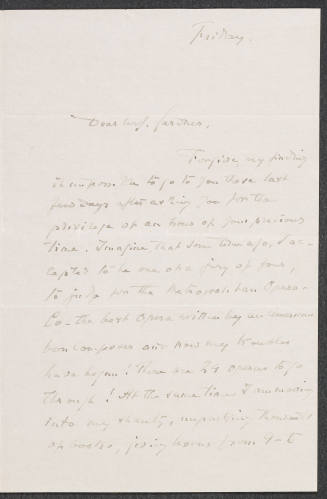 Friday.
Dear Mrs. Gardner,
Forgive my finding
it impossible to go to you these last
few days after asking you for the
privilege of an hour of your precious
time. Imagine that some time ago, I ac-
cepted to be one of a jury of four,
to judge for the Metropolitan Opera-
Co- the best Opera written by an American
born composer and now my troubles
have begun! There are 25 operas to go
through! At the same time I am moving
into my shanty, unpacking thousands
of books, giving lessons from 9-6